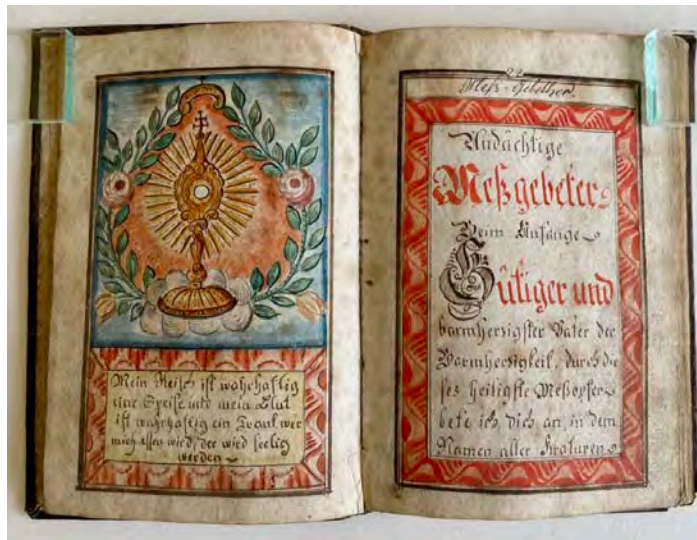 Mein Fleisch ist wahrhaftig
eine Speise und mein Blut
ist wahrhaftig ein Trank, wer
mich essen wird, der wird seelig
werden
22
Meß-Gebether.
Andächtige
Meßgebeter
Beim Anfange
Gütiger und
barmhersigster Vater der
Barmhersigkeit, durch die
ses heiligste Meßopfer
bete ich dich an, in dem
Namen aller Kraturen